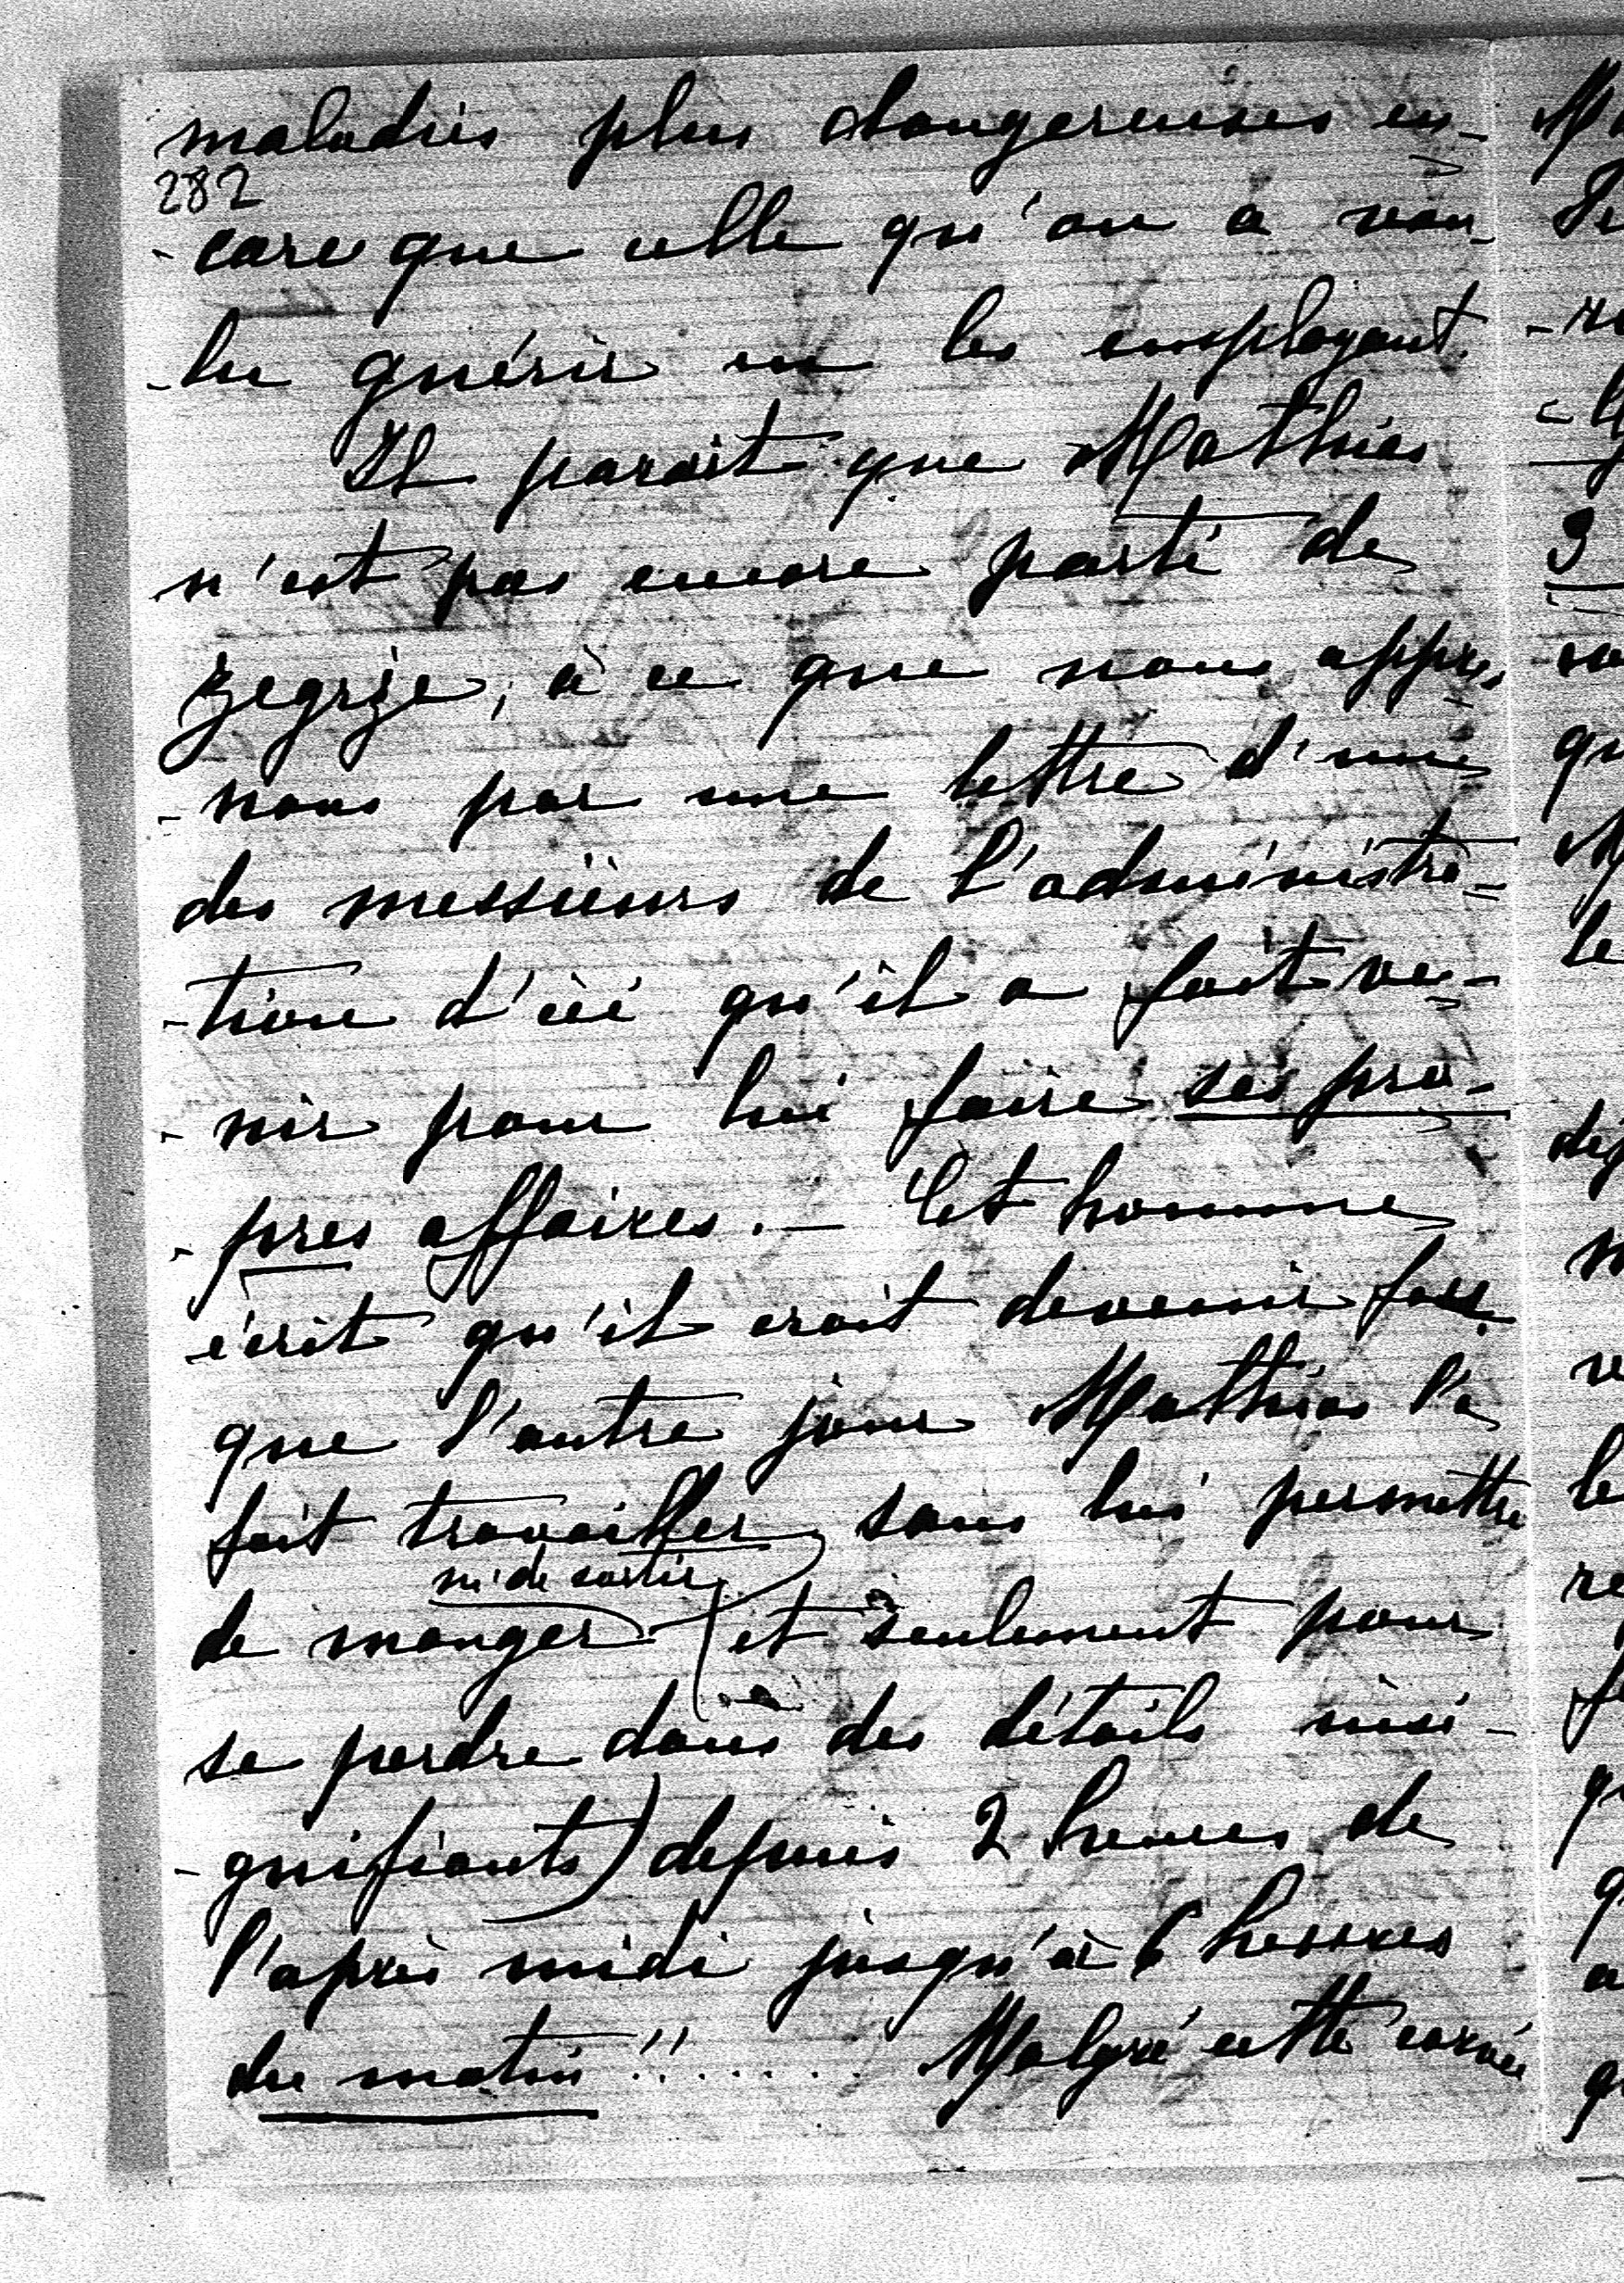 maladies plus dangereuses en-
282
-core que celle qu'on a vou-
-lu guérir en les employant.
Il parait que Mathias
n'est pas encore parti de
Zegrże, à ce que nous appre-
-nons par une lettre d'un
des messieurs de l'administra-
-tion d'ici qu'il a fait ve-
-nir pour lui faire ses pro-
-pres affaires. — Cet homme
écrit qu'il croit devenir fou
que l'autre jour Mathias l'a
fait travailler sans lui permettre
ni de sortir
de manger (et seulement pour
se perdre dans des détails insi-
-gnifiants) depuis 2 heures de
l'après midi jusqu'à 6 heures
du matin !!....... Malgré cette corvée